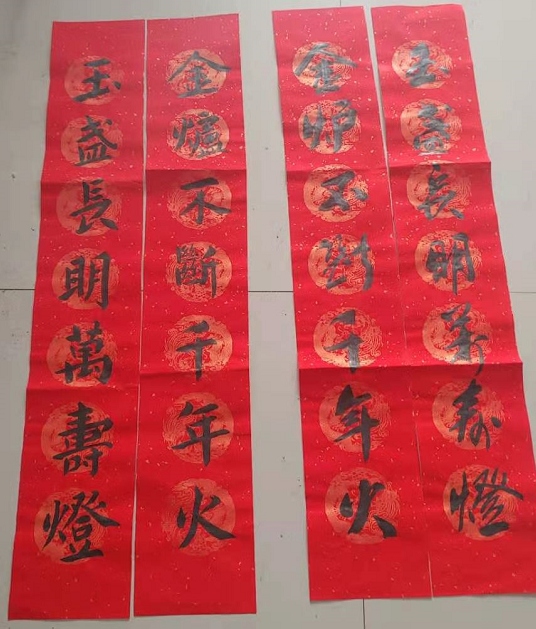 玉盏長明萬壽燈
金爐不斷千年火
金炉不断千年火
玉盏長明萬寿燈